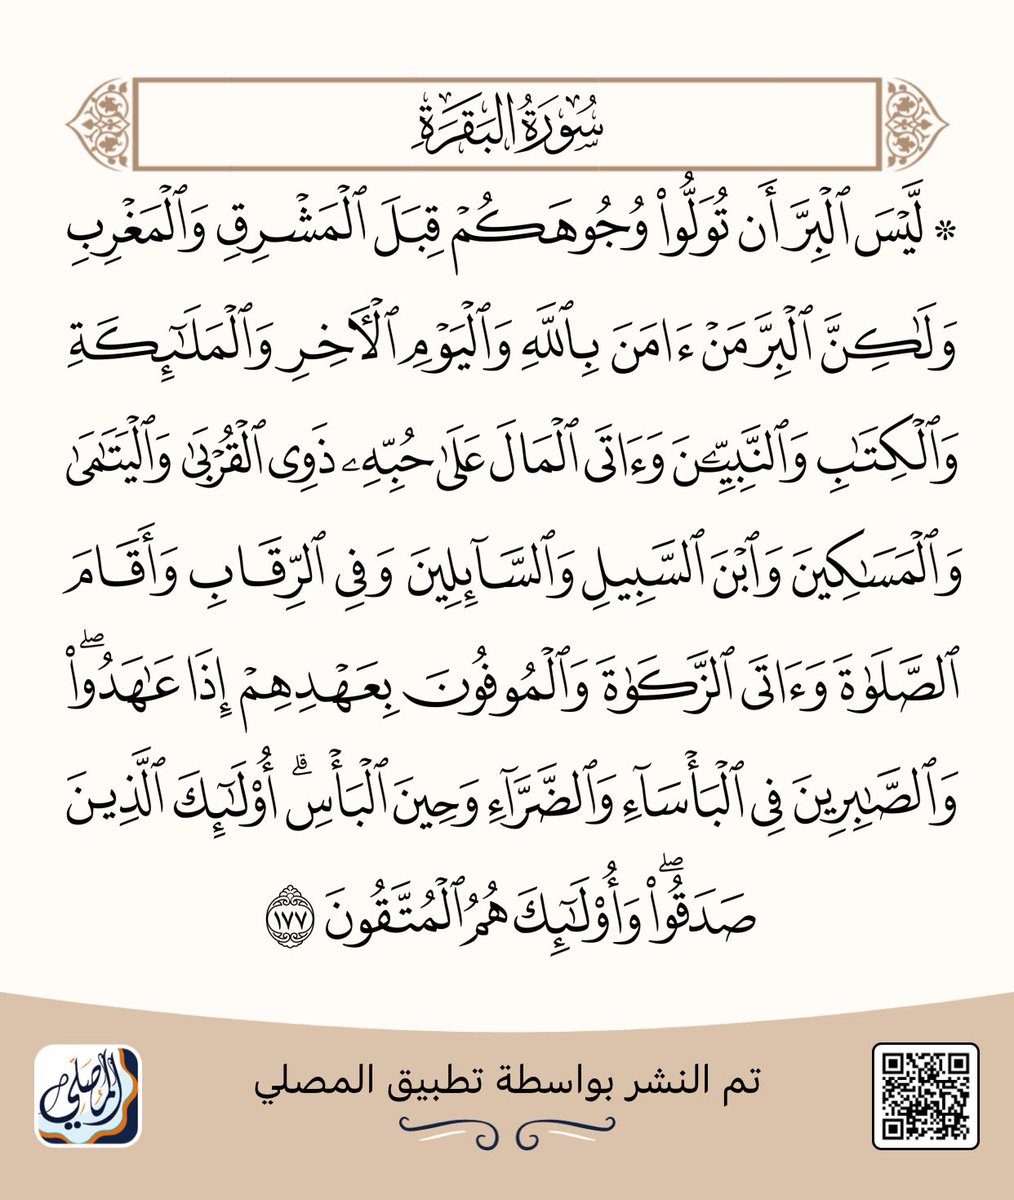 سُورَةُ البَقَرَةِ
۞ لَّيْسَ ٱلْبِرَّ أَن تُوَلُّوا۟ وُجُوهَكُمْ قِبَلَ ٱلْمَشْرِقِ وَٱلْمَغْرِبِ
وَلَـٰكِنَّ ٱلْبِرَّ مَنْ ءَامَنَ بِٱللَّهِ وَٱلْيَوْمِ ٱلْـَٔاخِرِ وَٱلْمَلَـٰٓئِكَةِ
وَٱلْكِتَـٰبِ وَٱلنَّبِيِّـۧنَ وَءَاتَى ٱلْمَالَ عَلَىٰ حُبِّهِۦ ذَوِى ٱلْقُرْبَىٰ وَٱلْيَتَـٰمَىٰ
وَٱلْمَسَـٰكِينَ وَٱبْنَ ٱلسَّبِيلِ وَٱلسَّآئِلِينَ وَفِى ٱلرِّقَابِ وَأَقَامَ
ٱلصَّلَوٰةَ وَءَاتَى ٱلزَّكَوٰةَ وَٱلْمُوفُونَ بِعَهْدِهِمْ إِذَا عَـٰهَدُوا۟ ۖ
وَٱلصَّـٰبِرِينَ فِى ٱلْبَأْسَآءِ وَٱلضَّرَّآءِ وَحِينَ ٱلْبَأْسِ ۗ أُو۟لَـٰٓئِكَ ٱلَّذِينَ
صَدَقُوا۟ ۖ وَأُو۟لَـٰٓئِكَ هُمُ ٱلْمُتَّقُونَ ١٧٧
تم النشر بواسطة تطبيق المصلي
المصلي